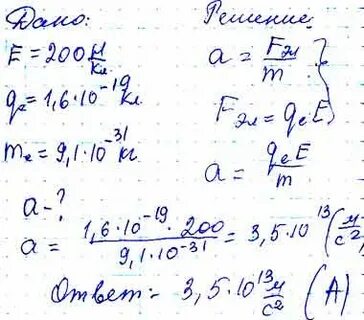 Дано:
E = 200 Н/Кл
qe = 1,6·10⁻¹⁹ Кл
me = 9,1·10⁻³¹ кг
a - ?
Решение:
a = Fэл/m
Fэл = qeE
a = qeE/m
a = 1,6·10⁻¹⁹·200/9,1·10⁻³¹ = 3,5·10¹³ (м/с²)
Ответ: 3,5·10¹³ м/с² (А)